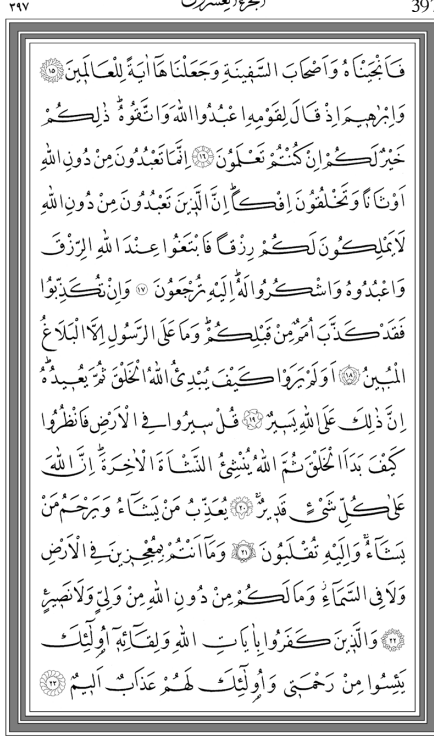 ٣٩٧ الجزء العشرون 397
فَاَنْجَيْنَاهُ وَاَصْحَابَ السَّف۪ينَةِ وَجَعَلْنَاهَٓا اٰيَةً لِلْعَالَم۪ينَ ﴿١٥﴾
وَاِبْرٰه۪يمَ اِذْ قَالَ لِقَوْمِهِ اعْبُدُوا اللّٰهَ وَاتَّقُوهُۜ ذٰلِكُمْ
خَيْرٌ لَكُمْ اِنْ كُنْتُمْ تَعْلَمُونَ ﴿١٦﴾ اِنَّمَا تَعْبُدُونَ مِنْ دُونِ اللّٰهِ
اَوْثَاناً وَتَخْلُقُونَ اِفْكاًۜ اِنَّ الَّذ۪ينَ تَعْبُدُونَ مِنْ دُونِ اللّٰهِ
لَا يَمْلِكُونَ لَكُمْ رِزْقاً فَابْتَغُوا عِنْدَ اللّٰهِ الرِّزْقَ
وَاعْبُدُوهُ وَاشْكُرُوا لَهُۜ اِلَيْهِ تُرْجَعُونَ ﴿١٧﴾ وَاِنْ تُكَذِّبُوا
فَقَدْ كَذَّبَ اُمَمٌ مِنْ قَبْلِكُمْۜ وَمَا عَلَى الرَّسُولِ اِلَّا الْبَلَاغُ
الْمُب۪ينُ ﴿١٨﴾ اَوَلَمْ يَرَوْا كَيْفَ يُبْدِئُ اللّٰهُ الْخَلْقَ ثُمَّ يُع۪يدُهُۜ
اِنَّ ذٰلِكَ عَلَى اللّٰهِ يَس۪يرٌ ﴿١٩﴾ قُلْ س۪يرُوا فِي الْاَرْضِ فَانْظُرُوا
كَيْفَ بَدَاَ الْخَلْقَ ثُمَّ اللّٰهُ يُنْشِئُ النَّشْاَةَ الْاٰخِرَةَۜ اِنَّ اللّٰهَ
عَلٰى كُلِّ شَيْءٍ قَد۪يرٌۚ ﴿٢٠﴾ يُعَذِّبُ مَنْ يَشَٓاءُ وَيَرْحَمُ مَنْ
يَشَٓاءُۚ وَاِلَيْهِ تُقْلَبُونَ ﴿٢١﴾ وَمَٓا اَنْتُمْ بِمُعْجِز۪ينَ فِي الْاَرْضِ
وَلَا فِي السَّمَٓاءِۘ وَمَا لَكُمْ مِنْ دُونِ اللّٰهِ مِنْ وَلِيٍّ وَلَا نَص۪يرٍ
﴿٢٢﴾ وَالَّذ۪ينَ كَفَرُوا بِاٰيَاتِ اللّٰهِ وَلِقَٓائِه۪ٓ اُو۬لٰٓئِكَ
يَئِسُوا مِنْ رَحْمَت۪ي وَاُو۬لٰٓئِكَ لَهُمْ عَذَابٌ اَل۪يمٌ ﴿٢٣﴾